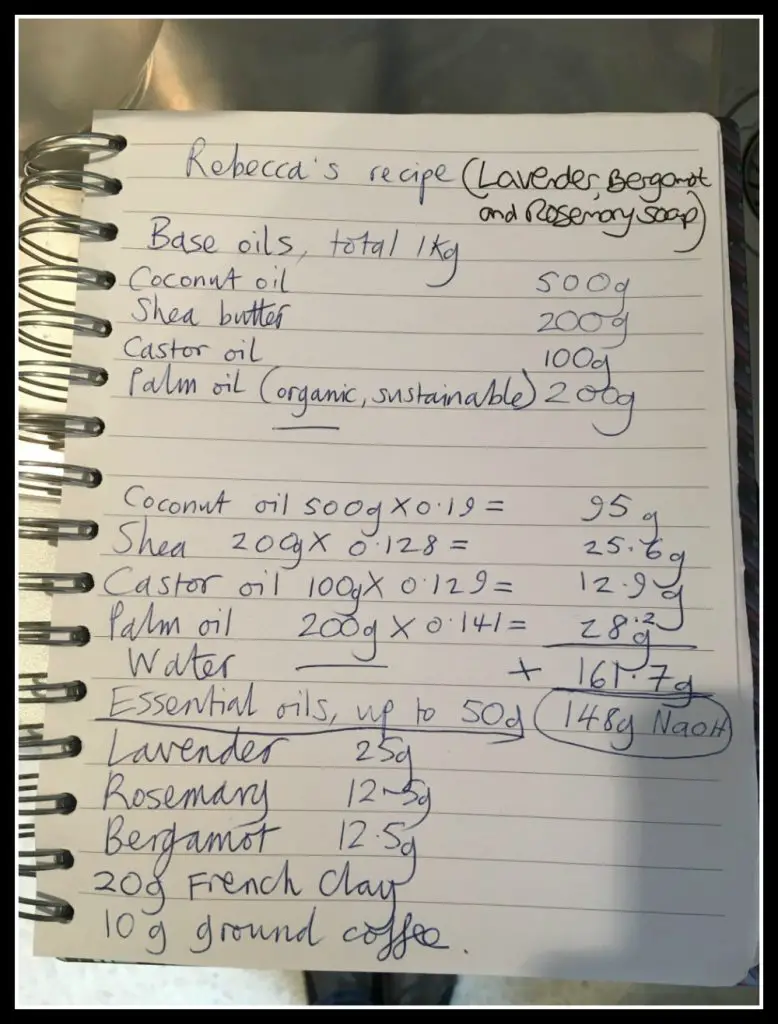 Rebecca's recipe (Lavender, Bergamot
and Rosemary soap)
Base oils, total 1kg
Coconut oil 500g
Shea butter 200g
Castor oil 100g
Palm oil (organic, sustainable) 200g
Coconut oil 500g X 0.19 = 95g
Shea 200g X 0.128 = 25.6g
Castor oil 100g X 0.129 = 12.9g
Palm oil 200g X 0.141 = 28.2g
Water + 161.7g
Essential oils, up to 50g 148g NaOH
Lavender 25g
Rosemary 12.5g
Bergamot 12.5g
20g French Clay
10g ground coffee.